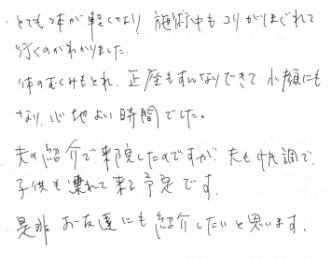 ・とても体が軽くなり 施術中もコリがほぐれて
行くのがわかりました。
体のむくみもとれ、正座もすんなりできて 小顔にも
なり、心地よい時間でした。
夫の紹介で来院したのですが、夫も快調で、
子供も連れて来る予定です。
是非 お友達にも紹介したいと思います。